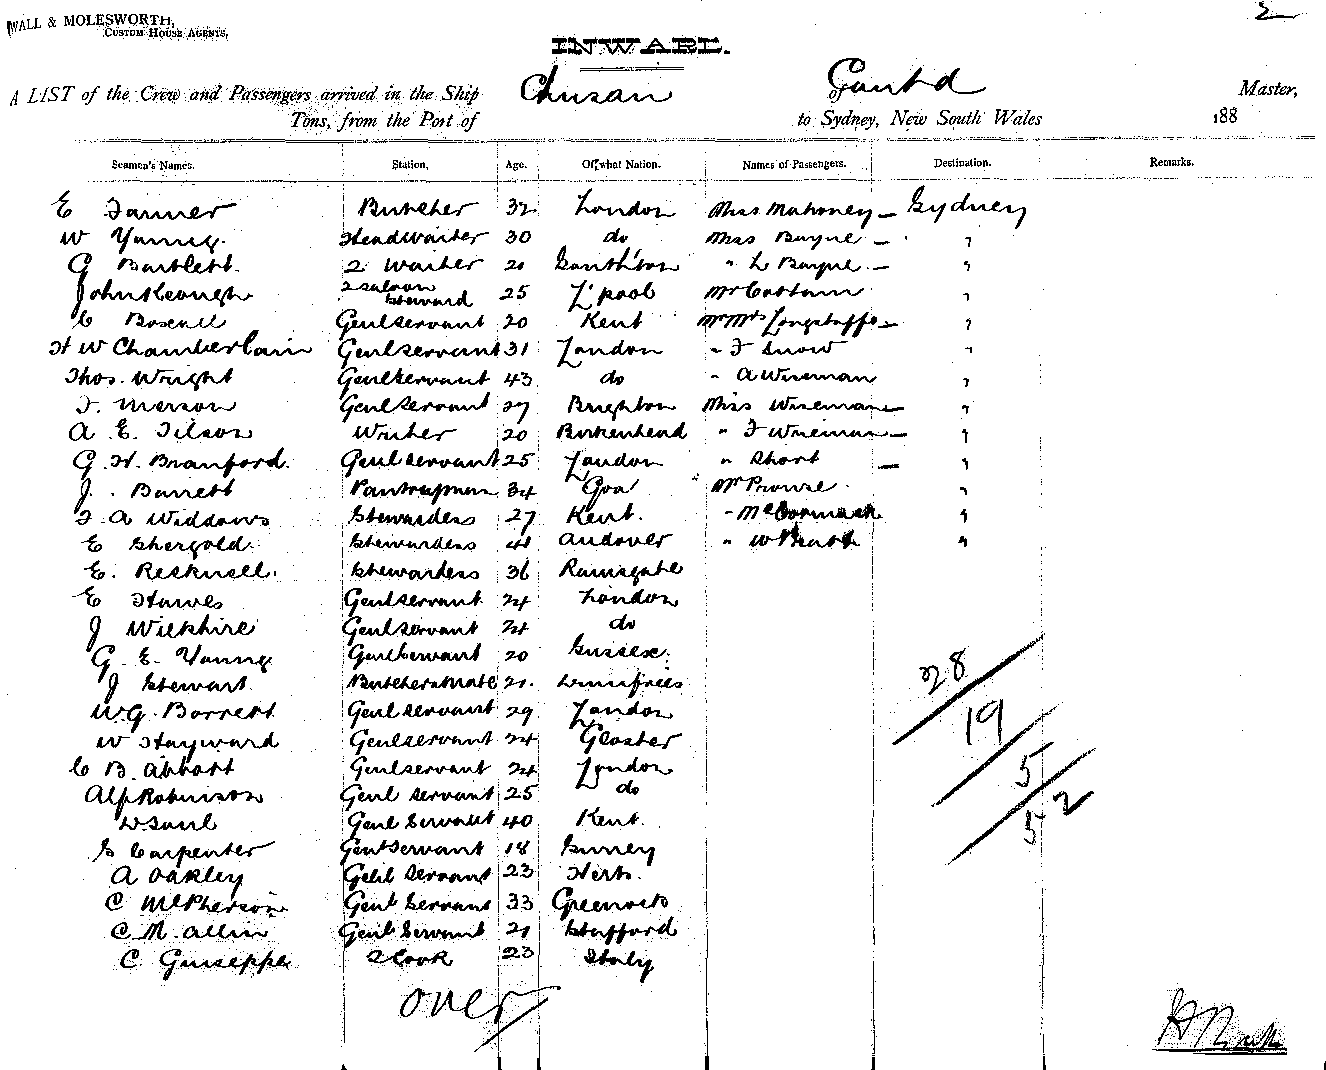 2
WALL & MOLESWORTH,
CUSTOM HOUSE AGENTS,
INWARD.
A LIST of the Crew and Passengers arrived in the Ship Chusan Master,
Tons, from the Port of to Sydney, New South Wales 188
Seamen's Names. Station, Age. Of what Nation. Names of Passengers. Destination. Remarks.
E Farmer Butcher 32 London Miss Mahoney – Sydney
W Young. Head Waiter 30 do Miss Bayne – "
G Bartlett. 2 Waiter 20 Southton " L Bayne – "
John Keough 2 Saloon Steward 25 L'pool Mr "
C Genl Servant 20 Kent Mr Mrs Longstaffe – "
H W Chamberlain Genl Servant 31 London " F Snow "
Thos. Wright Genl Servant 43 do " A Wiseman "
F. Merson Genl Servant 27 Brighton Miss Wiseman – "
A E. Tilson Writer 20 Birkenhead " F Wiseman – "
G. H. Branford. Genl Servant 25 London " Short – "
J. Barrett Pantryman 34 Goa Mr Prowse. "
F A Widdows Stewardess 27 Kent. " McCormack "
E Shergold. Stewardess 41 Andover " W Heath "
E. Stewardess 36 Ramsgate
E Hawes Genl Servant 24 London
J Wilkshire Genl Servant 24 do
G. E. Young Genl Servant 20 Sussex.
J Stewart Butchers Mate 21. Dumfries
W G Barrett Genl Servant 29 London
W Hayward Genl Servant 24 Gloster
C B. Abbott Genl Servant 24 London
Alf Robinson Genl Servant 25 do
W. Saul Genl Servant 40 Kent.
G Carpenter Genl Servant 18 Surrey
A Oakley Genl Servant 23 Herts.
C McPherson Genl Servant 33 Greenock
C. M. Allin Genl Servant 21 Stafford
C Guiseppe 2 Cook 23 Italy
28
19
5
52
over